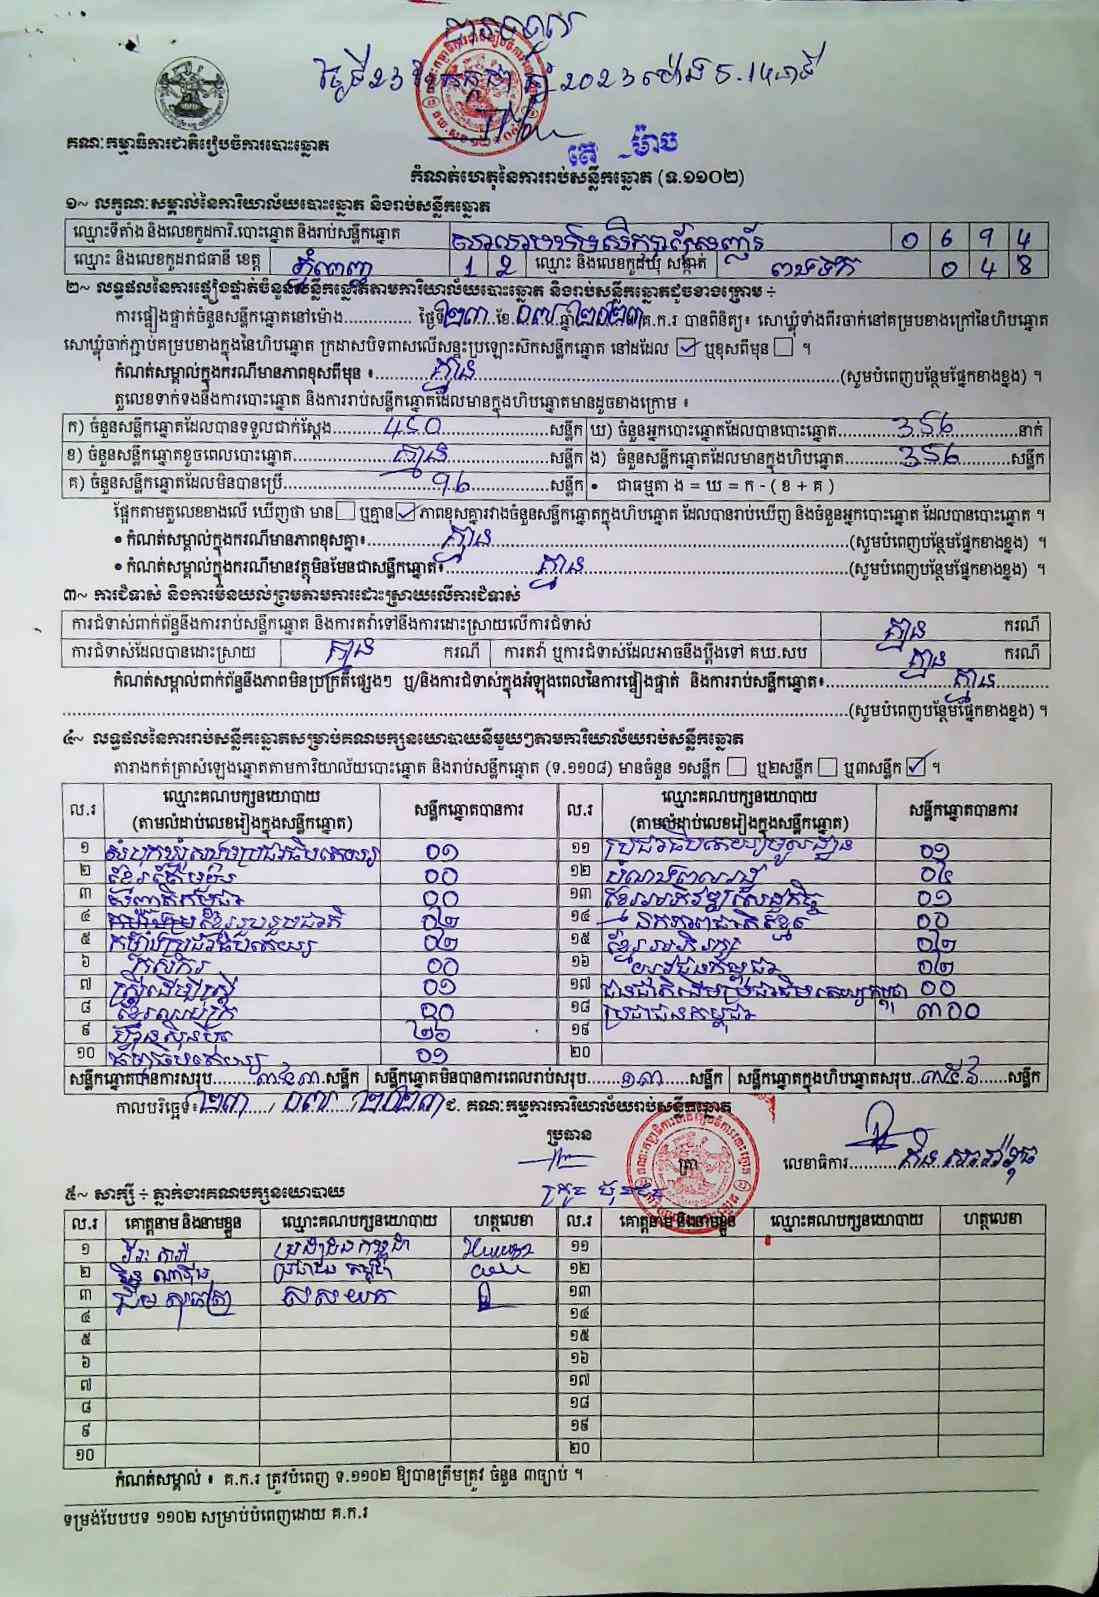 បានទទួល
ថ្ងៃទី23 ខែកក្កដា ឆ្នាំ 2023 ម៉ោង 5.14នាទី
គណៈកម្មាធិការជាតិរៀបចំការបោះឆ្នោត
កំណត់ហេតុនៃការរាប់សន្លឹកឆ្នោត (ទ.១១០២)
១~ លក្ខណៈសម្គាល់នៃការិយាល័យបោះឆ្នោត និងរាប់សន្លឹកឆ្នោត
ឈ្មោះទីតាំង និងលេខកូដការិ.បោះឆ្នោត និងរាប់សន្លឹកឆ្នោត 0 6 9 4
ឈ្មោះ និងលេខកូដរាជធានី ខេត្ត ភ្នំពេញ 1 2 ឈ្មោះ និងលេខកូដឃុំ សង្កាត់ 0 4 8
២~ លទ្ធផលនៃការផ្ទៀងផ្ទាត់ចំនួនសន្លឹកឆ្នោតតាមការិយាល័យបោះឆ្នោត និងរាប់សន្លឹកឆ្នោតដូចខាងក្រោម ÷
ការផ្ទៀងផ្ទាត់ចំនួនសន្លឹកឆ្នោតនៅម៉ោង............... ថ្ងៃទី២៣..ខែ.០៧ ឆ្នាំ២០២៣គ.ក.រ បានពិនិត្យ៖ សោឃ្លុំទាំងពីរចាក់នៅគម្របខាងក្រៅនៃហិបឆ្នោត
សោឃ្លុំចាក់ភ្ជាប់គម្របខាងក្នុងនៃហិបឆ្នោត ក្រដាសបិទពាសលើសន្ទះប្រឡោះស៊កសន្លឹកឆ្នោត នៅដដែល ☑ ឬខុសពីមុន ☐ ។
កំណត់សម្គាល់ក្នុងករណីមានភាពខុសពីមុន ៖ គ្មាន (សូមបំពេញបន្ថែមផ្នែកខាងខ្នង) ។
តួលេខទាក់ទងនឹងការបោះឆ្នោត និងការរាប់សន្លឹកឆ្នោតដែលមានក្នុងហិបឆ្នោតមានដូចខាងក្រោម ៖
ក) ចំនួនសន្លឹកឆ្នោតដែលបានទទួលជាក់ស្តែង.........450.........សន្លឹក ឃ) ចំនួនអ្នកបោះឆ្នោតដែលបានបោះឆ្នោត.........356.........នាក់
ខ) ចំនួនសន្លឹកឆ្នោតខូចពេលបោះឆ្នោត.........គ្មាន.........សន្លឹក ង) ចំនួនសន្លឹកឆ្នោតដែលមានក្នុងហិបឆ្នោត.........356.........សន្លឹក
គ) ចំនួនសន្លឹកឆ្នោតដែលមិនបានប្រើ.........96.........សន្លឹក • ជាធម្មតា ង = ឃ = ក - ( ខ + គ )
ផ្អែកតាមតួលេខខាងលើ ឃើញថា មាន ☐ ឬគ្មាន ☑ ភាពខុសគ្នារវាងចំនួនសន្លឹកឆ្នោតក្នុងហិបឆ្នោត ដែលបានរាប់ឃើញ និងចំនួនអ្នកបោះឆ្នោត ដែលបានបោះឆ្នោត ។
• កំណត់សម្គាល់ក្នុងករណីមានភាពខុសគ្នា៖ គ្មាន (សូមបំពេញបន្ថែមផ្នែកខាងខ្នង) ។
• កំណត់សម្គាល់ក្នុងករណីមានវត្ថុមិនមែនជាសន្លឹកឆ្នោត៖ គ្មាន (សូមបំពេញបន្ថែមផ្នែកខាងខ្នង) ។
៣~ ការជំទាស់ និងការមិនយល់ព្រមតាមការដោះស្រាយលើការជំទាស់
ការជំទាស់ពាក់ព័ន្ធនឹងការរាប់សន្លឹកឆ្នោត និងការតវ៉ាទៅនឹងការដោះស្រាយលើការជំទាស់ គ្មាន ករណី
ការជំទាស់ដែលបានដោះស្រាយ គ្មាន ករណី ការតវ៉ា ឬការជំទាស់ដែលអាចនឹងប្តឹងទៅ គឃ.សប គ្មាន ករណី
កំណត់សម្គាល់ពាក់ព័ន្ធនឹងភាពមិនប្រក្រតីផ្សេងៗ ឬ/និងការជំទាស់ក្នុងអំឡុងពេលនៃការផ្ទៀងផ្ទាត់ និងការរាប់សន្លឹកឆ្នោត៖ គ្មាន
(សូមបំពេញបន្ថែមផ្នែកខាងខ្នង) ។
៤~ លទ្ធផលនៃការរាប់សន្លឹកឆ្នោតសម្រាប់គណបក្សនយោបាយនីមួយៗតាមការិយាល័យរាប់សន្លឹកឆ្នោត
តារាងកត់ត្រាសំឡេងឆ្នោតតាមការិយាល័យបោះឆ្នោត និងរាប់សន្លឹកឆ្នោត (ទ.១១០៨) មានចំនួន ១សន្លឹក ☐ ឬ២សន្លឹក ☐ ឬ៣សន្លឹក ☑ ។
ល.រ ឈ្មោះគណបក្សនយោបាយ (តាមលំដាប់លេខរៀងក្នុងសន្លឹកឆ្នោត) សន្លឹកឆ្នោតបានការ ល.រ ឈ្មោះគណបក្សនយោបាយ (តាមលំដាប់លេខរៀងក្នុងសន្លឹកឆ្នោត) សន្លឹកឆ្នោតបានការ
១ សំបុកឃ្មុំសង្គមប្រជាធិបតេយ្យ ០១ ១១ ប្រជាធិបតេយ្យមូលដ្ឋាន ០១
២ ០០ ១២ ០៤
៣ ០០ ១៣ ខ្មែរអភិវឌ្ឍន៍សេដ្ឋកិច្ច ០១
៤ ខ្មែររួបរួមជាតិ ០២ ១៤ ឯកភាពជាតិខ្មែរ ០០
៥ កម្លាំងប្រជាធិបតេយ្យ ០២ ១៥ ខ្មែរអភិរក្ស ០២
៦ កសិករ ០០ ១៦ យុវជនកម្ពុជា ០២
៧ ស្ត្រីដើម្បីស្ត្រី ០១ ១៧ ជនជាតិដើមប្រជាធិបតេយ្យកម្ពុជា ០០
៨ ១៨ ប្រជាជនកម្ពុជា ៣០០
៩ ហ៊្វុនស៊ិនប៉ិច ២៦ ១៩
១០ ០១ ២០
សន្លឹកឆ្នោតបានការសរុប.........៣៤៣.....សន្លឹក សន្លឹកឆ្នោតមិនបានការពេលរាប់សរុប.......១៣.....សន្លឹក សន្លឹកឆ្នោតក្នុងហិបឆ្នោតសរុប..៣៥៦......សន្លឹក
កាលបរិច្ឆេទ៖២៣..../.០៧..../២០២៣ ជ. គណៈកម្មការការិយាល័យរាប់សន្លឹកឆ្នោត
ប្រធាន
ត្រា
លេខាធិការ
៥~ សាក្សី ÷ ភ្នាក់ងារគណបក្សនយោបាយ
ល.រ គោត្តនាម និងនាមខ្លួន ឈ្មោះគណបក្សនយោបាយ ហត្ថលេខា ល.រ គោត្តនាម និងនាមខ្លួន ឈ្មោះគណបក្សនយោបាយ ហត្ថលេខា
១ ប្រជាជនកម្ពុជា ១១
២ ប្រជាជនកម្ពុជា ១២
៣ ១៣
៤ ១៤
៥ ១៥
៦ ១៦
៧ ១៧
៨ ១៨
៩ ១៩
១០ ២០
កំណត់សម្គាល់ ៖ គ.ក.រ ត្រូវបំពេញ ទ.១១០២ ឱ្យបានត្រឹមត្រូវ ចំនួន ៣ច្បាប់ ។
ទម្រង់បែបបទ ១១០២ សម្រាប់បំពេញដោយ គ.ក.រ